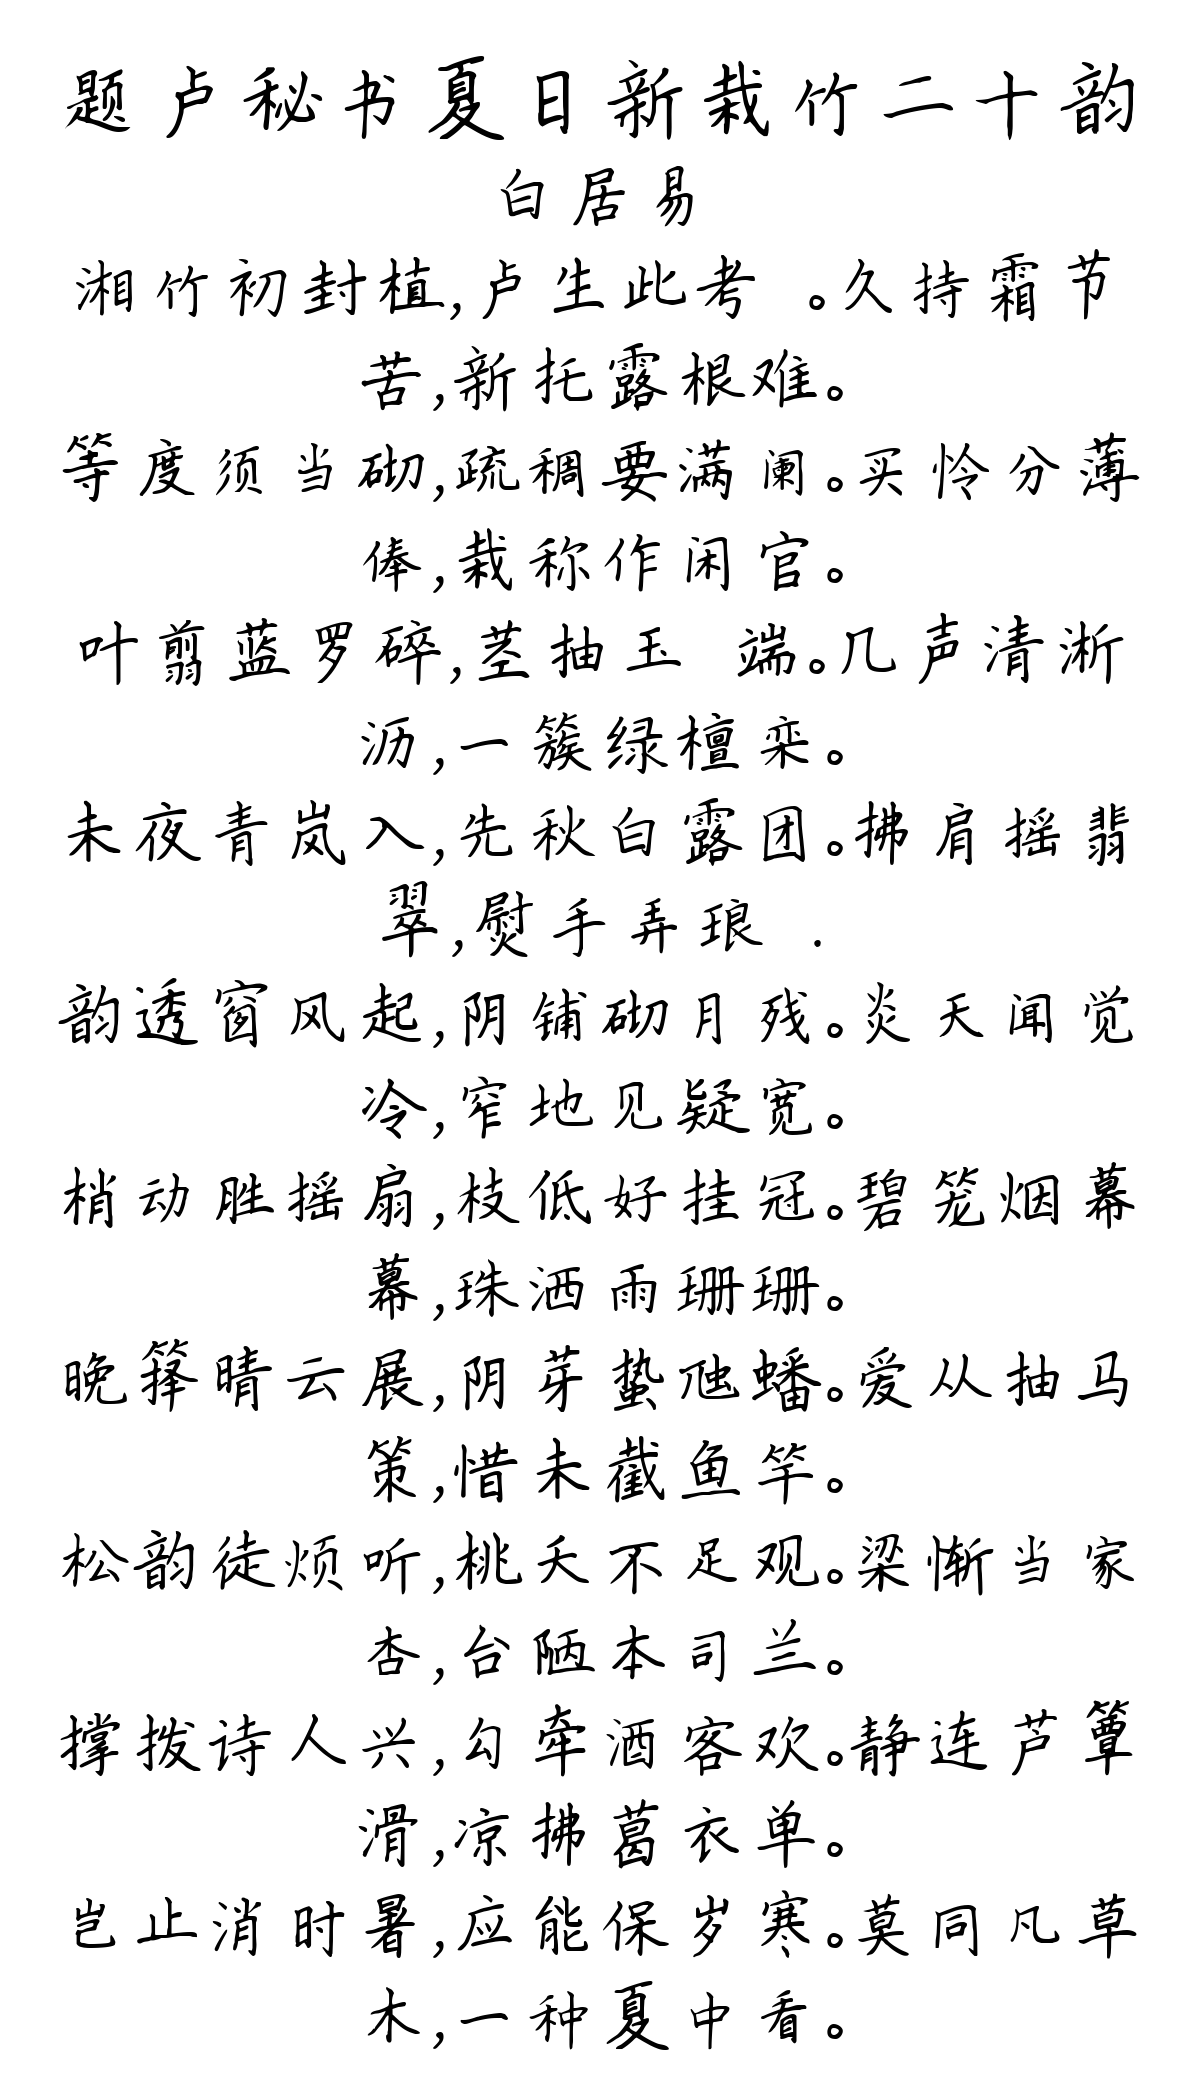 题卢秘书夏日新栽竹二十韵
白居易
湘竹初封植,卢生此考 。久持霜节
苦,新托露根难。
等度须当砌,疏稠要满阑。买怜分薄
俸,栽称作闲官。
叶翦蓝罗碎,茎抽玉 端。几声清淅
沥,一簇绿檀栾。
未夜青岚入,先秋白露团。拂肩摇翡
翠,熨手弄琅 .
韵透窗风起,阴铺砌月残。炎天闻觉
冷,窄地见疑宽。
梢动胜摇扇,枝低好挂冠。碧笼烟幕
幕,珠洒雨珊珊。
晚箨晴云展,阴芽蛰虺蟠。爱从抽马
策,惜未截鱼竿。
松韵徒烦听,桃夭不足观。梁惭当家
杏,台陋本司兰。
撑拨诗人兴,勾牵酒客欢。静连芦簟
滑,凉拂葛衣单。
岂止消时暑,应能保岁寒。莫同凡草
木,一种夏中看。